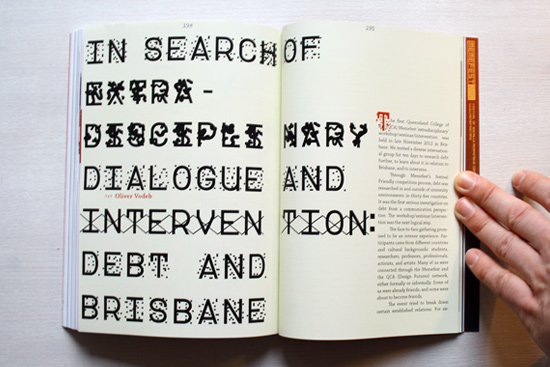 IN SEARCH OF
EXTRA-
DISCIPLINARY
DIALOGUE AND
BY Oliver Vodeb
INTERVENTION:
DEBT AND
BRISBANE
The first Queensland College of
(QCA)-Memefest extradisciplinary
workshop/seminar/intervention was
held in late November 2012 in Bris-
bane. We invited a diverse internation-
al group for ten days to research debt
further, to learn about it in relation to
Brisbane, and to intervene.
Through Memefest's festival
Friendly competition process, debt was
researched in and outside of university
environments in thirty-five countries.
It was the first serious investigation on
debt from a communication perspec-
tive. The workshop/seminar/interven-
tion was the next logical step.
The face to face gathering prom-
ised to be an intense experience. Par-
ticipants came from different countries
and cultural backgrounds: students,
researchers, professors, professionals,
artists, and artists. Many of us were
connected through the Memefest and
the QCA (Design Futures) network,
either formally or informally. Some of
us were already friends, and some were
about to become friends.
The event tried to break down
certain established relations. For ex-
MEMEFEST